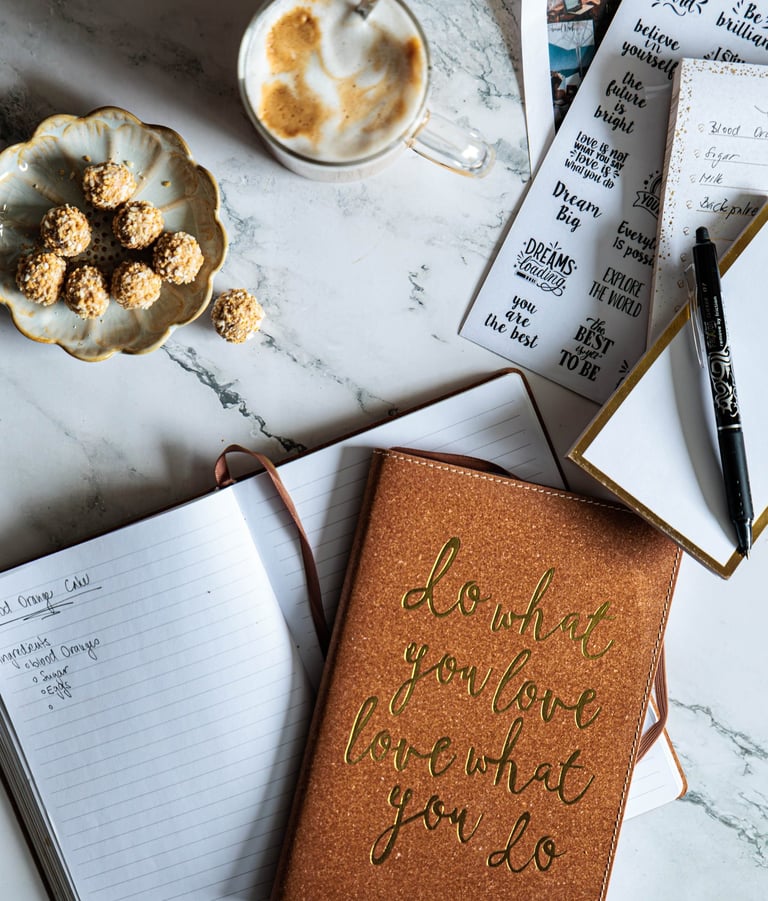 Be
brilliant
believe
in
yourself
the
future
is
bright
LOVE IS NOT
WHAT YOU SAY
LOVE IS
WHAT YOU DO
Dream
Big
DREAMS
loading
you
are
the best
EXPLORE
THE WORLD
the
BEST
is yet
TO BE
Blood
Sugar
Milk
do what
you love
love what
you do
Orange Cake
Blood Oranges
Sugar
Eggs